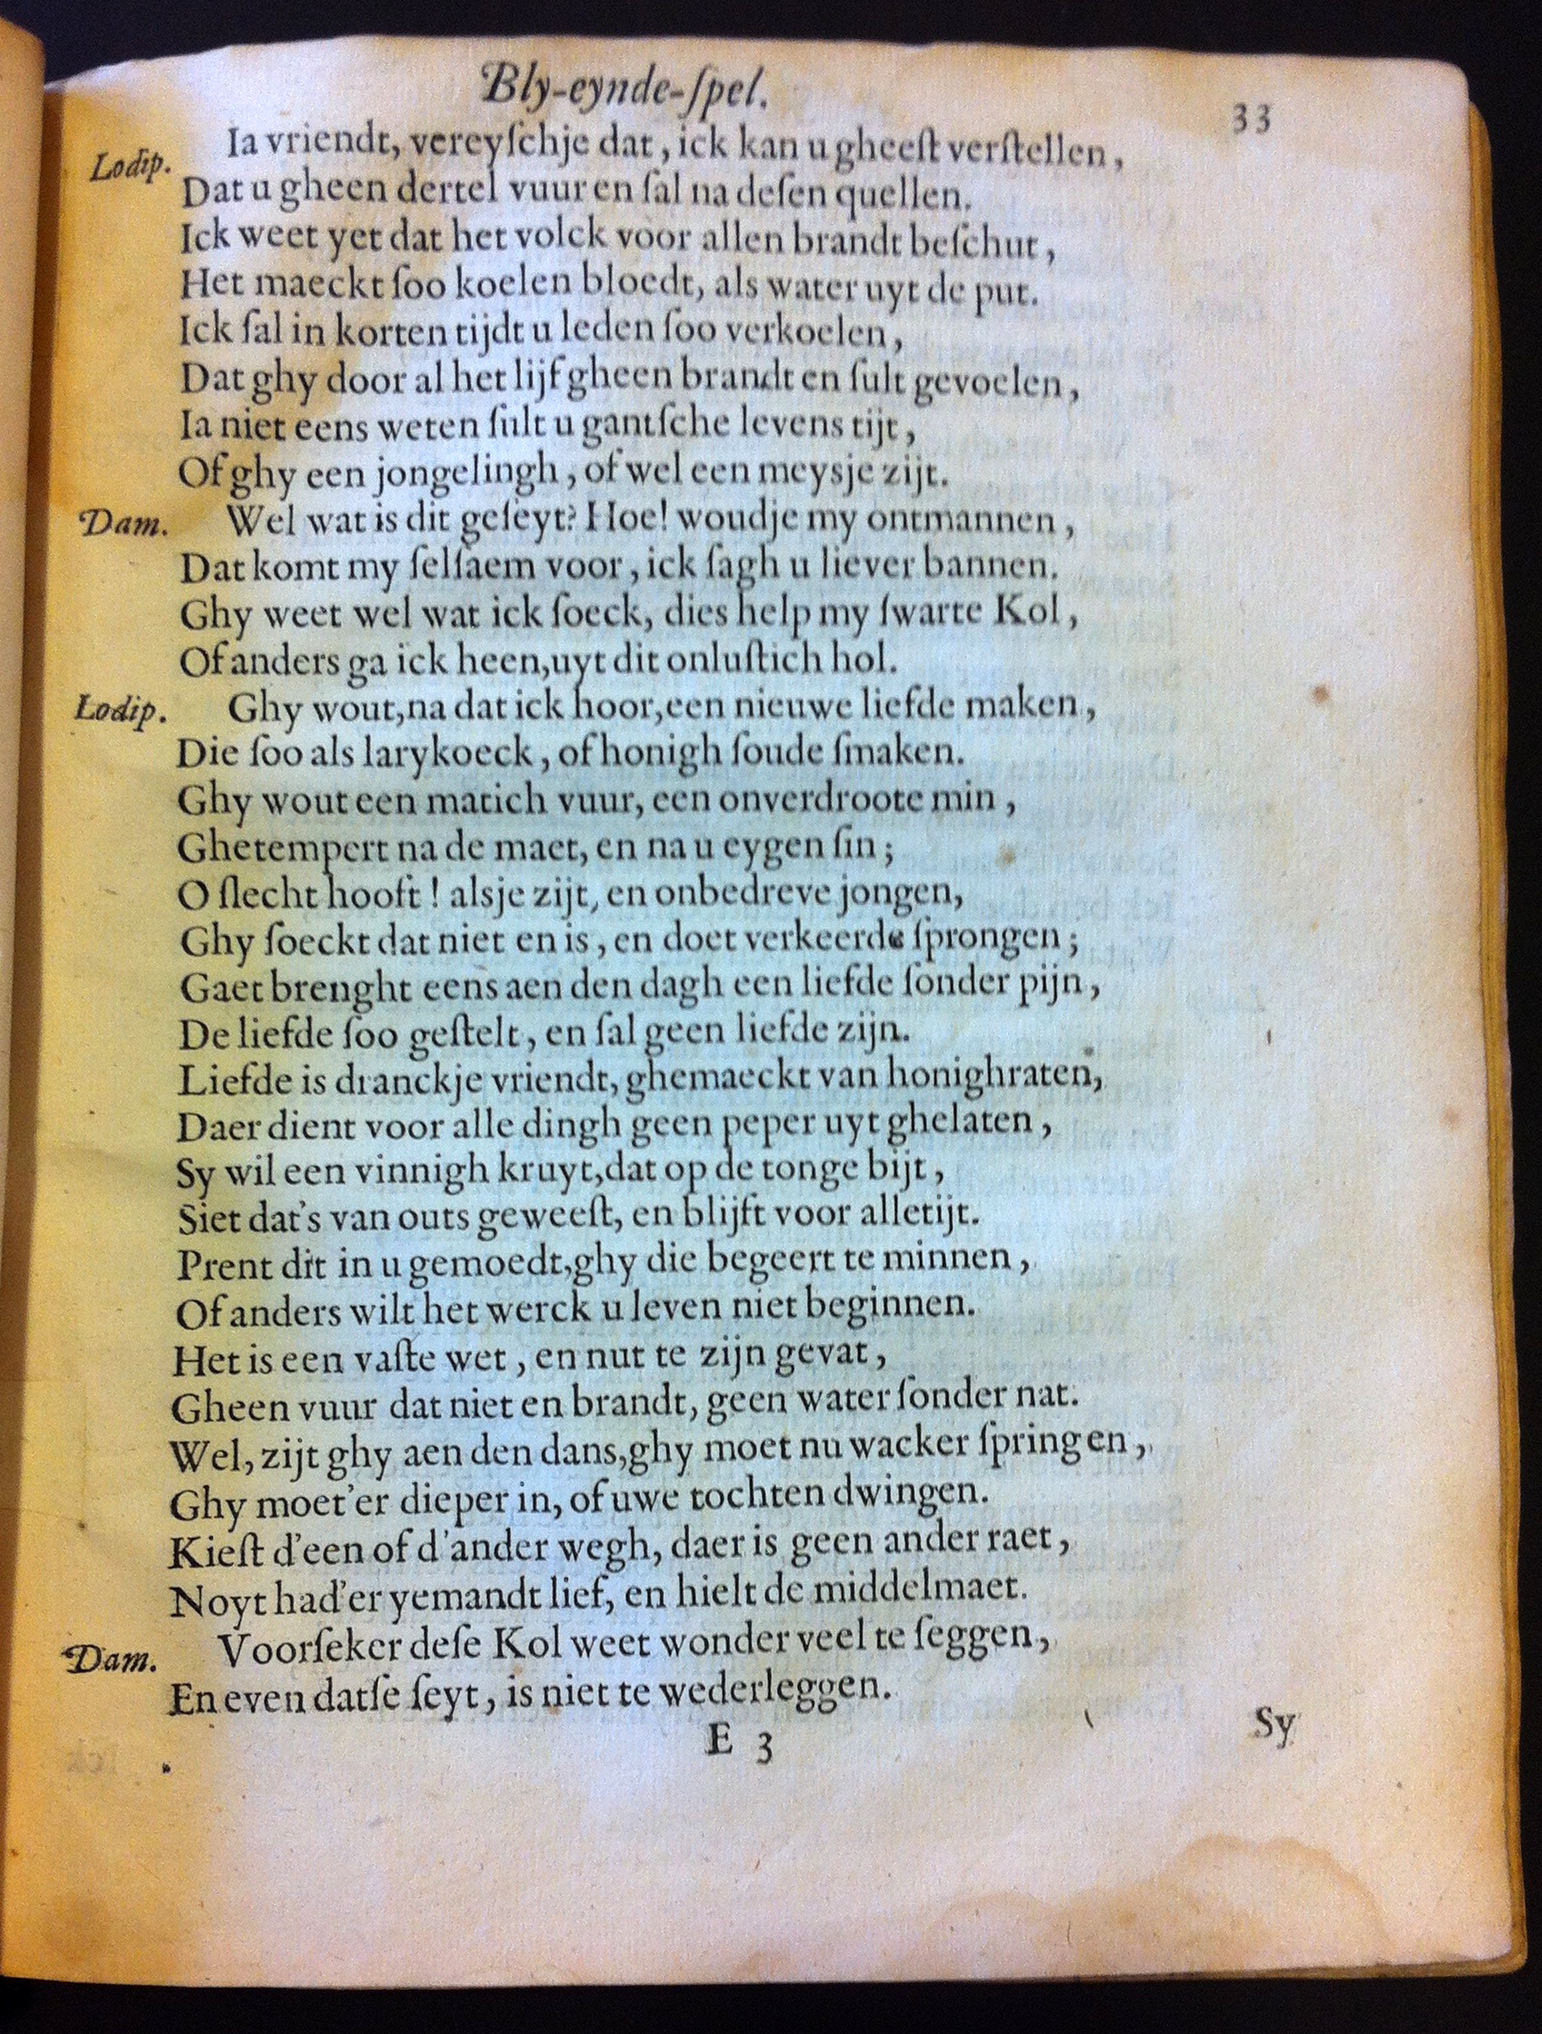 Bly-eynde-ſpel.
33
Lodip. Ia vriendt, vereyſchje dat, ick kan u gheeſt verſtellen,
Dat u gheen dertel vuur en ſal na deſen quellen.
Ick weet yet dat het volck voor allen brandt beſchut,
Het maeckt ſoo koelen bloedt, als water uyt de put.
Ick ſal in korten tijdt u leden ſoo verkoelen,
Dat ghy door al het lijf gheen brandt en ſult gevoelen,
Ia niet eens weten ſult u gantſche levens tijt,
Of ghy een jongelingh, of wel een meysje zijt.
Dam. Wel wat is dit geſeyt? Hoe! woudje my ontmannen,
Dat komt my ſelſaem voor, ick ſagh u liever bannen.
Ghy weet wel wat ick ſoeck, dies help my ſwarte Kol,
Of anders ga ick heen, uyt dit onluſtich hol.
Lodip. Ghy wout, na dat ick hoor, een nieuwe liefde maken,
Die ſoo als larykoeck, of honigh ſoude ſmaken.
Ghy wout een matich vuur, een onverdroote min,
Ghetempert na de maet, en na u eygen ſin;
O ſlecht hooft! alsje zijt, en onbedreve jongen,
Ghy ſoeckt dat niet en is, en doet verkeerde ſprongen;
Gaet brenght eens aen den dagh een liefde ſonder pijn,
De liefde ſoo geſtelt, en ſal geen liefde zijn.
Liefde is dranckje vriendt, ghemaeckt van honighraten,
Daer dient voor alle dingh geen peper uyt ghelaten,
Sy wil een vinnigh kruyt, dat op de tonge bijt,
Siet dat's van outs geweeſt, en blijft voor alletijt.
Prent dit in u gemoedt, ghy die begeert te minnen,
Of anders wilt het werck u leven niet beginnen.
Het is een vaſte wet, en nut te zijn gevat,
Gheen vuur dat niet en brandt, geen water ſonder nat.
Wel, zijt ghy aen den dans, ghy moet nu wacker ſpringen,
Ghy moet'er dieper in, of uwe tochten dwingen.
Kieſt d'een of d'ander wegh, daer is geen ander raet,
Noyt had'er yemandt lief, en hielt de middelmaet.
Dam. Voorſeker deſe Kol weet wonder veel te ſeggen,
En even datſe ſeyt, is niet te wederleggen.
E 3
Sy